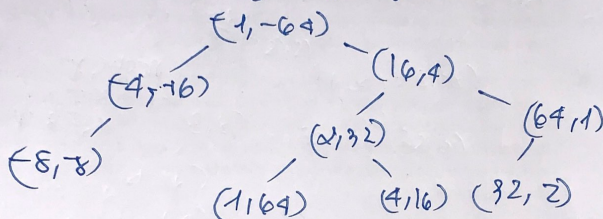 (-1, -64)
(-4, -16)
(16, 4)
(2, 32)
(64, 1)
(-8, -8)
(1, 64)
(4, 16)
(32, 2)